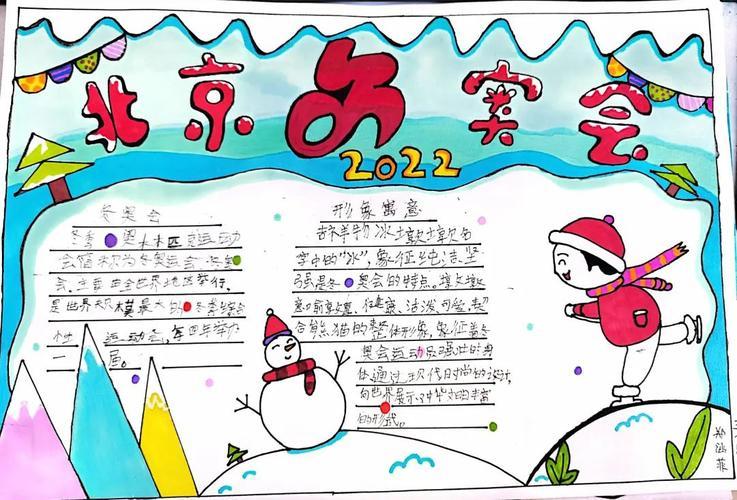 北京冬奥会
2022
冬奥会
冬季奥林匹克运动
会简称为冬奥运会。冬奥
会,主要由全世界地区举行,
是世界规模最大的冬季综合
性运动会,每四年举办
一届。
形象寓意
吉祥物冰墩墩名
字中的“冰”,象征纯洁、坚
强是冬奥会的特点。墩墩
意喻敦厚、健康、活泼、可爱,契
合熊猫的整体形象,象征着冬
奥会运动员强壮的身
体通过现代时尚的设计,
向世界展示了中华文化丰富
的形式。